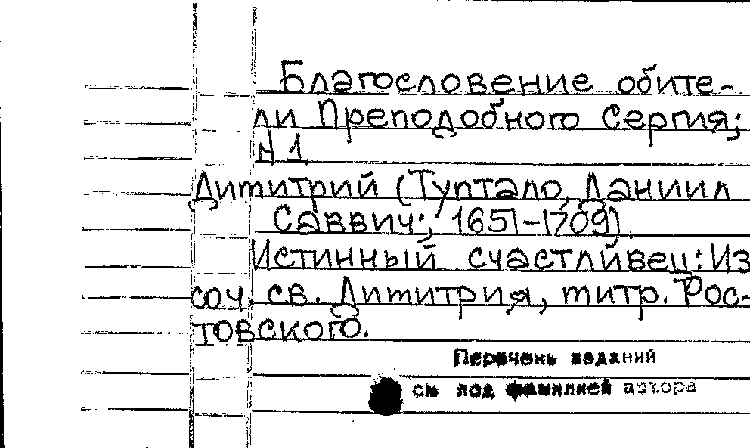 Благословение обите-
ли Преподобного Сергия;
N 1
Дитит­рий (Туптало, Даниил
Саввич; 1651-1709)
Истинный счастливец: Из
соч. св. Дитит­рия, митр. Рос-
товского.
Перечень изданий
см под фамилией автора